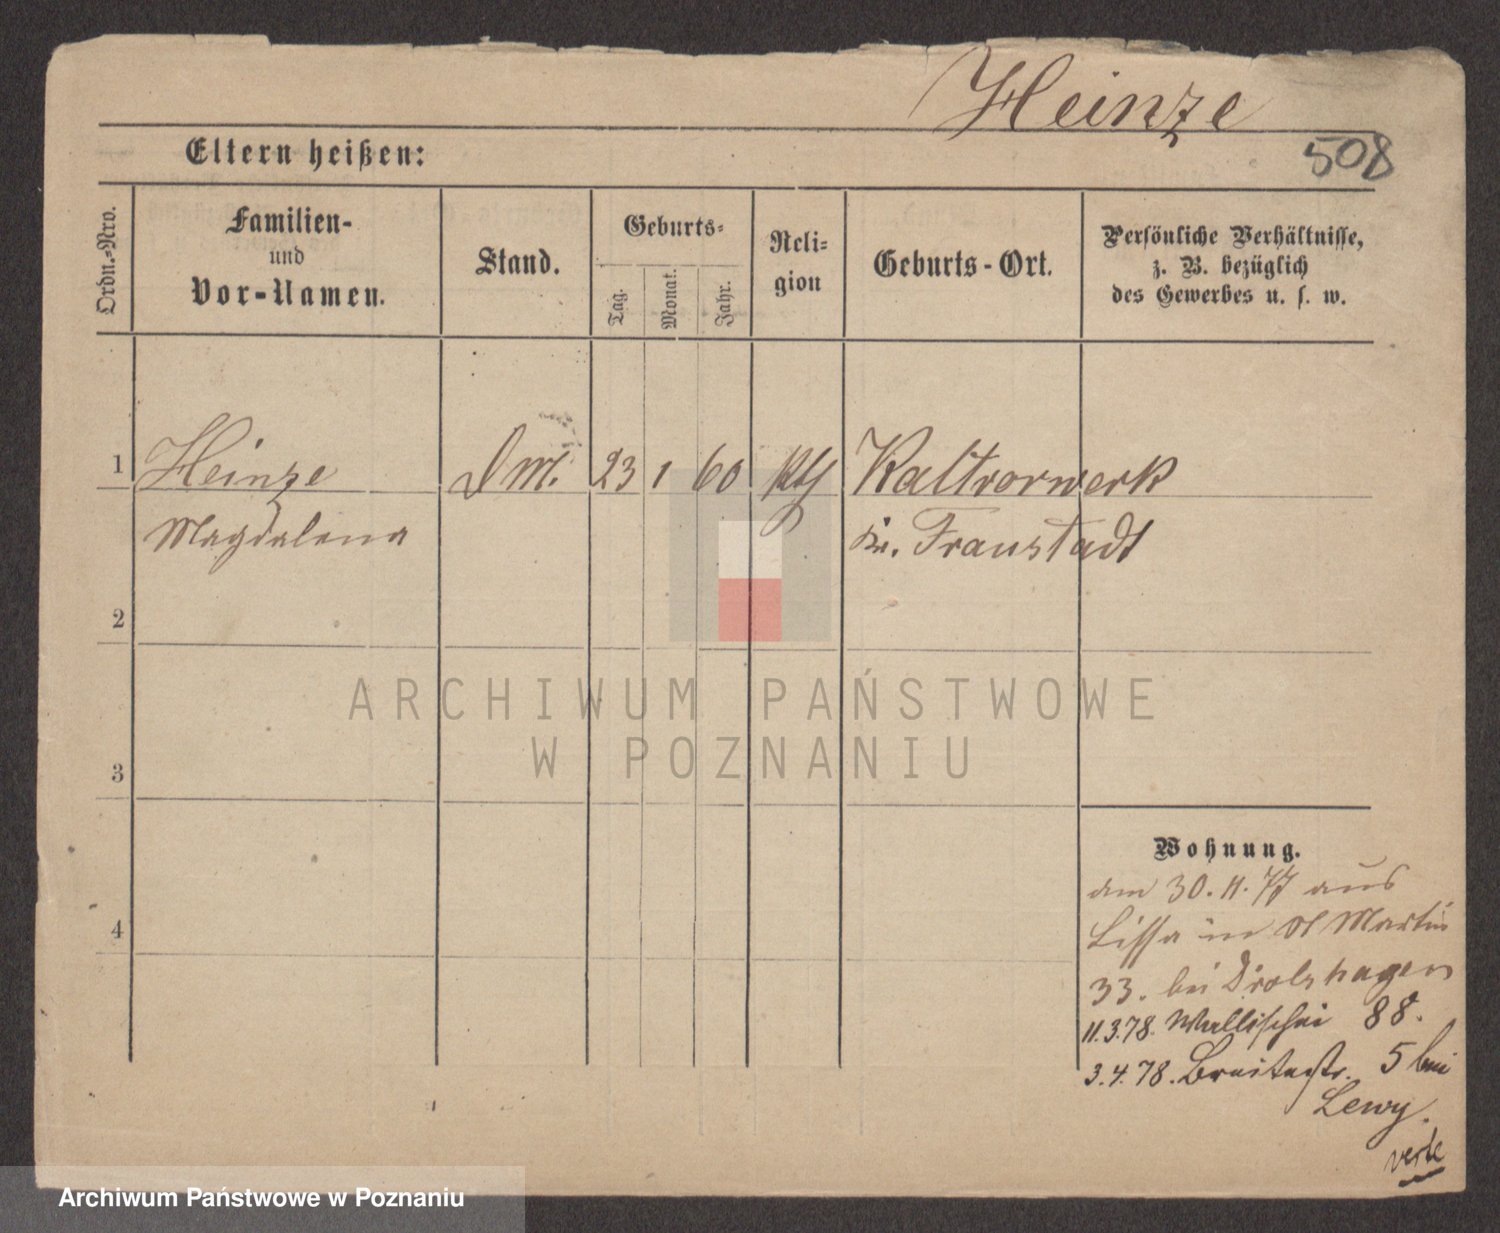 Heinze
508
Eltern heißen:
Ordn.-Nro.
Familien-
und
Vor-Namen.
Stand.
Geburts-
Tag.
Monat.
Jahr.
Reli-
gion
Geburts-Ort.
Persönliche Verhältnisse,
z. B. bezüglich
des Gewerbes u. s. w.
1 Heinze DM. 23 1 60 kth Kaltvorwerk
Magdalena Kr. Fraustadt
2
3
4
Wohnung.
am 30. 11. 77 aus
Lissa in St Martin
33. bei Drolshagen
11.3.78. Wallischei 88.
3.4.78. Breitestr. 5 bei
Lewy.
verte
ARCHIWUM PAŃSTWOWE
W POZNANIU
Archiwum Państwowe w Poznaniu